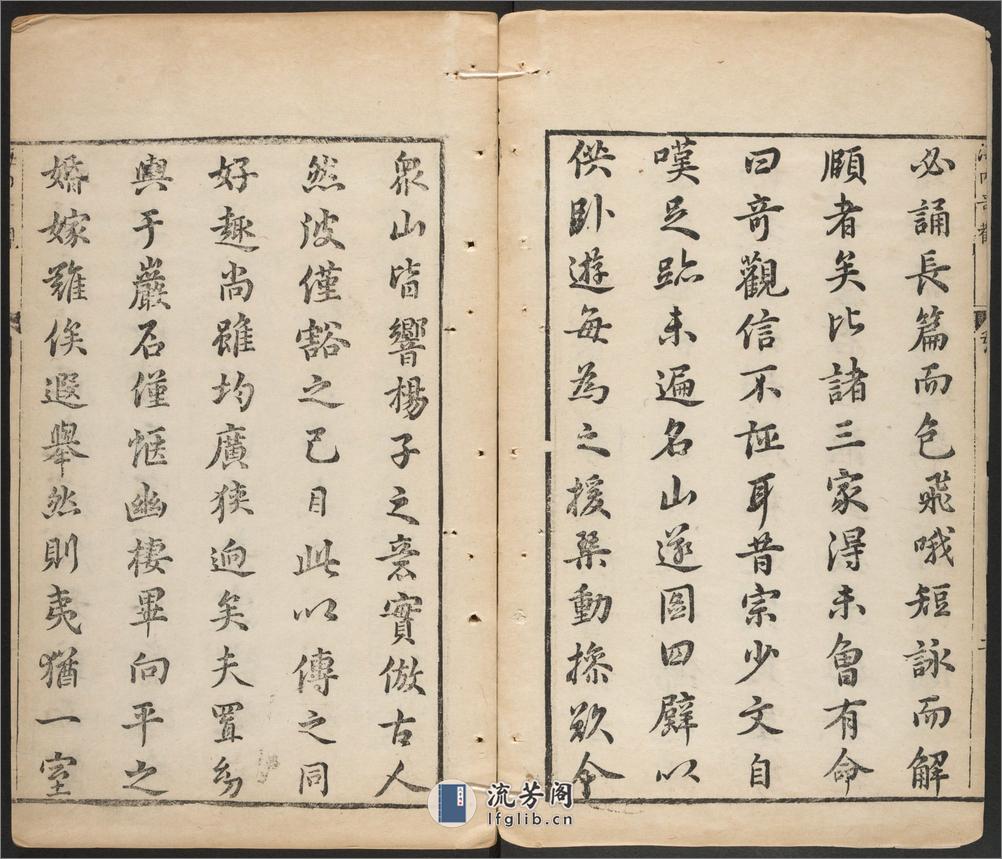 必誦長篇而色飛哦短詠而解
頤者矣比諸三家得未曾有命
曰奇觀信不誣耳昔宗少文自
嘆足跡未遍名山遂圖四壁以
供臥遊每為之援琴動操欲令
眾山皆響楊子之意實倣古人
然彼僅豁之己目此以傳之同
好趣尚雖均廣狹逈矣夫置幼
輿于巖石僅愜幽棲畢向平之
婚嫁難俟遐舉然則夷猶一室
海內奇觀
二
流芳阁
lfglib.cn